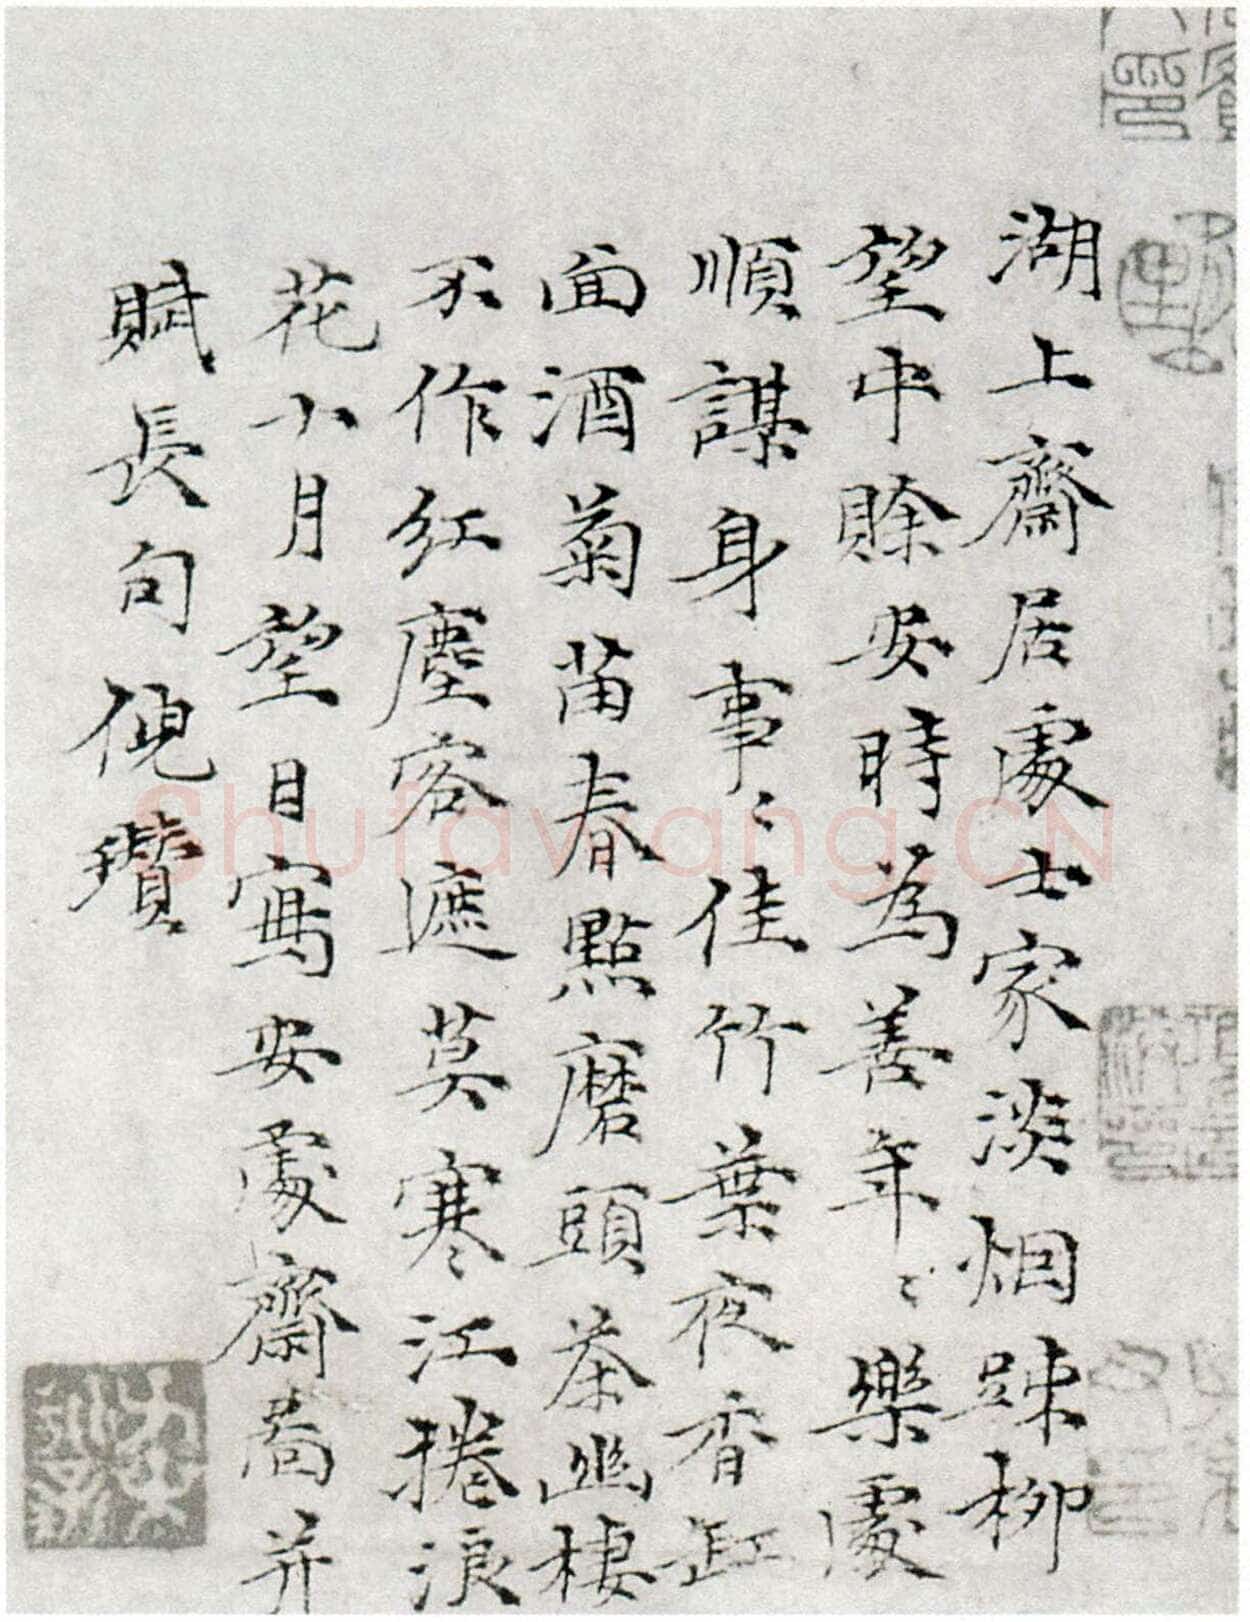 湖上齋居處士家淡烟踈柳
望中賖安時為善年〻樂處
順謀身事〻佳竹葉夜香缸
面酒菊苗春點磨頭茶幽棲
不作紅塵客遮莫寒〻江捲浪
花十月望日寫安處齋啚并
賦長句倪瓚
Shufawang.CN